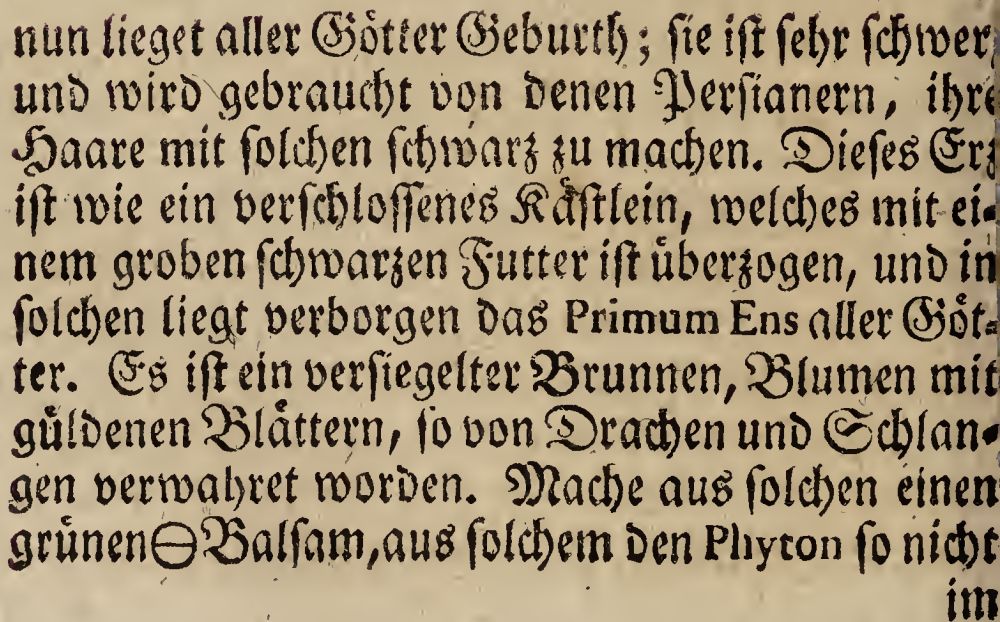 nun lieget aller Goͤtter Geburth; ſie iſt ſehr ſchwer,
und wird gebraucht von denen Perſianern, ihre
Haare mit ſolchen ſchwarz zu machen. Dieſes Erz
iſt wie ein verſchloſſenes Kaͤſtlein, welches mit ei-
nem groben ſchwarzen Futter iſt uͤberzogen, und in
ſolchen liegt verborgen das Primum Ens aller Goͤt-
ter. Es iſt ein verſiegelter Brunnen, Blumen mit
guͤldenen Blaͤttern, ſo von Drachen und Schlan-
gen verwahret worden. Mache aus ſolchen einen
gruͤnen⊖Balſam, aus ſolchem den Phyton ſo nicht
im